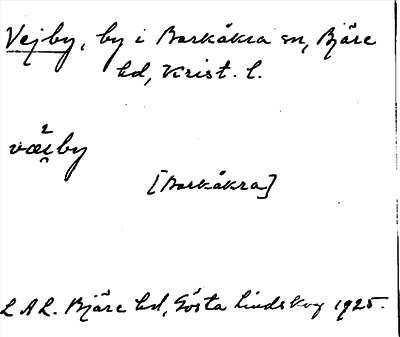 Vejby, by i Barkåkra sn, Bjäre
hd, Krist. l.
væ̀i̯by
[Barkåkra]
LAL. Bjäre hd, Gösta Lindskog 1925.